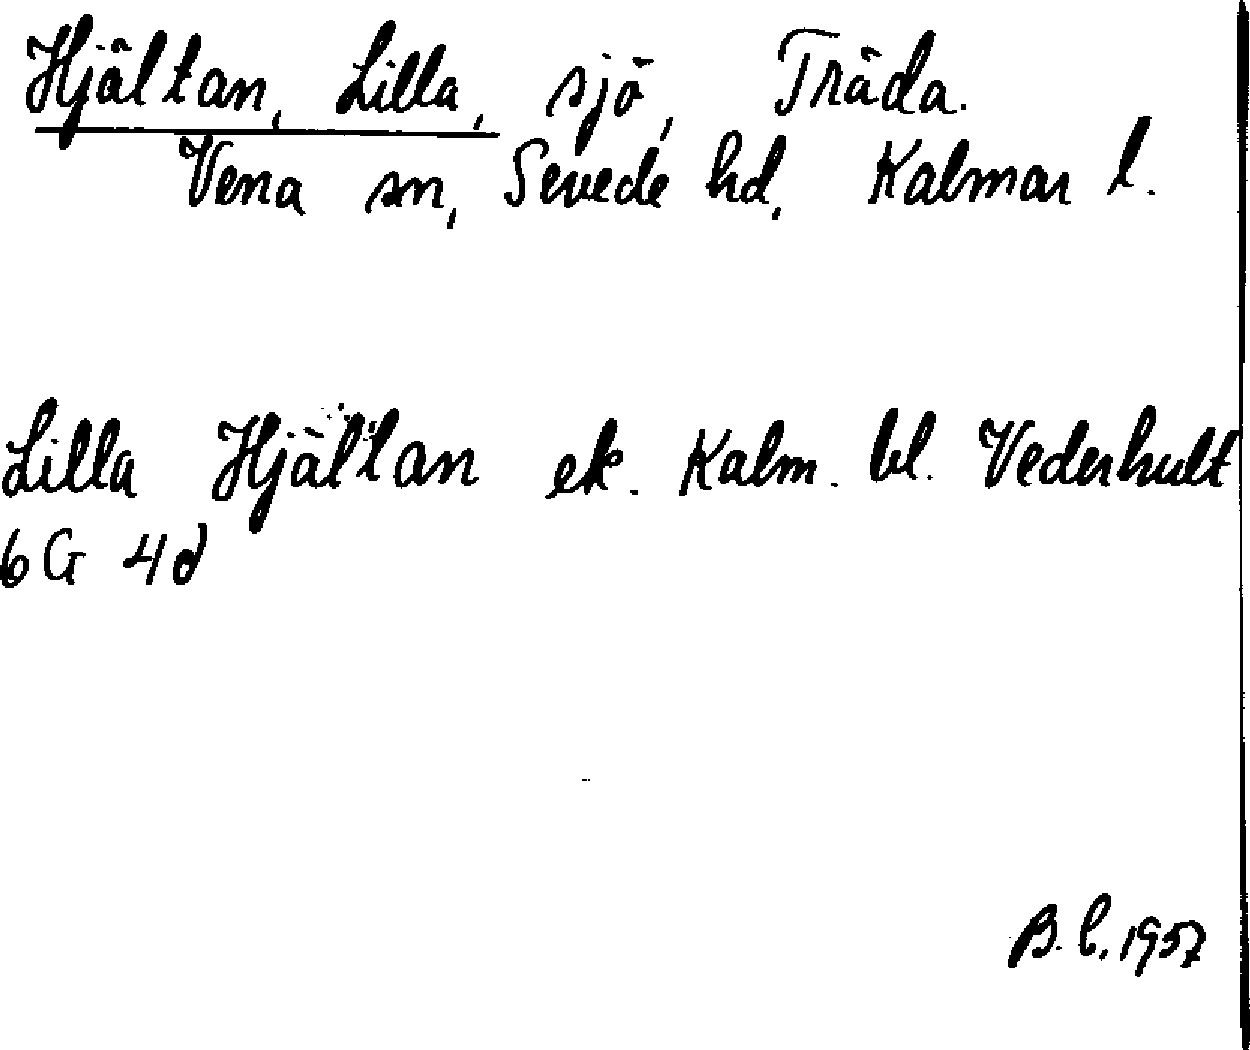 Hjältan, Lilla, sjö, Träda.
Vena sn, Sevede hd, Kalmar l.
Lilla Hjältan ek. Kalm. bl. Vederhult
6G 4d
B.C. 1957